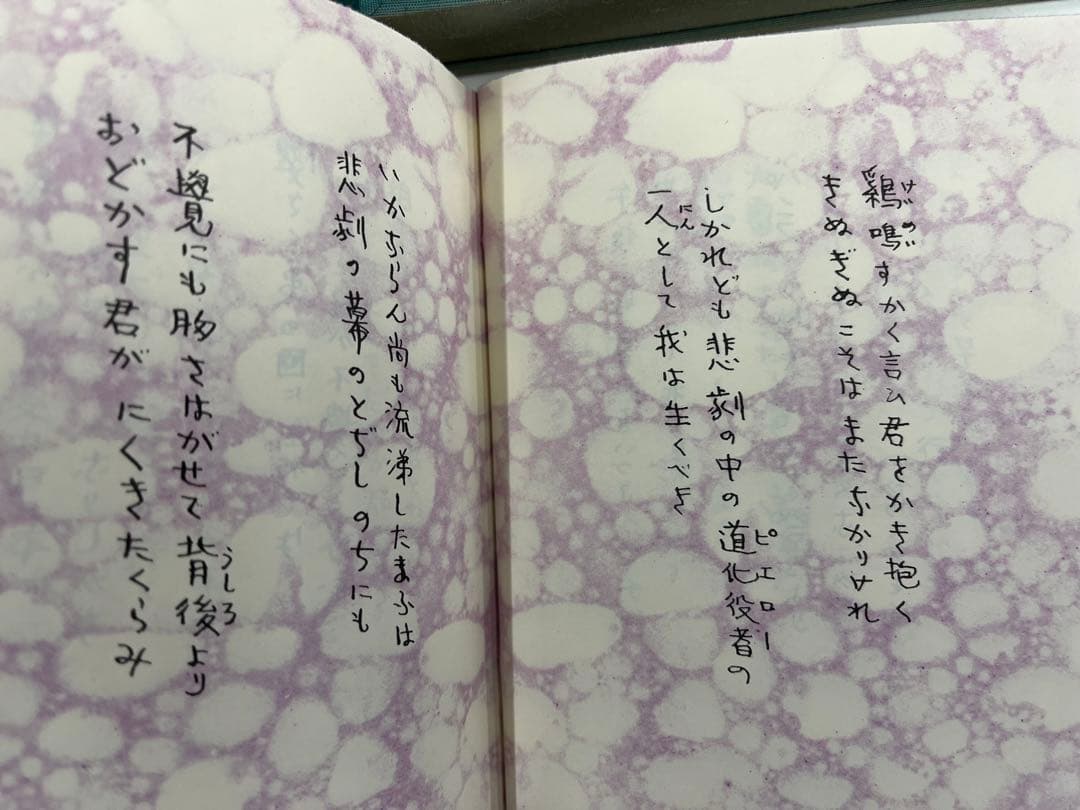 鷄鳴すかく言ひ君をかき抱く
きぬぎぬこそはまたなかりけれ
しかれども悲劇の中の道化役者の
一人として我は生くべき
いかならん尚も流涕したまふは
悲劇の幕のとぢしのちにも
不覺にも胸さはがせて背後より
おどかす君がにくきたくらみ
にん
ピエロー
うしろ